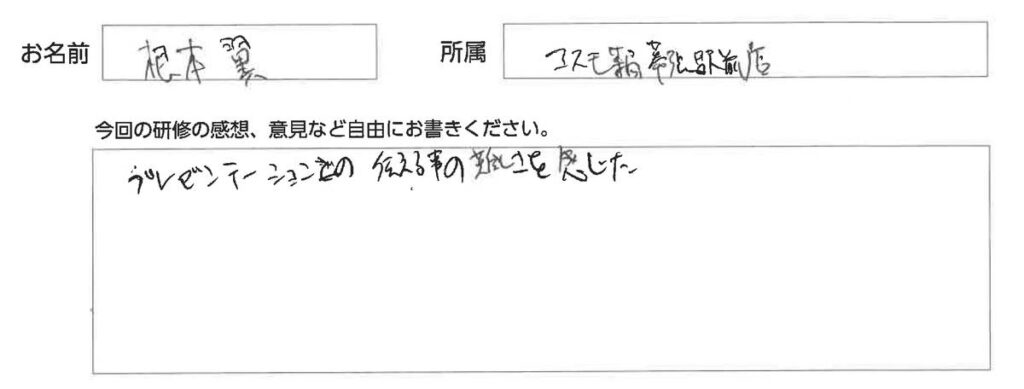 お名前 根本翼 所属 コスモ 幕張駅前店
今回の研修の感想、意見など自由にお書きください。
プレゼンテーションでの 伝える事の難しさを感じた